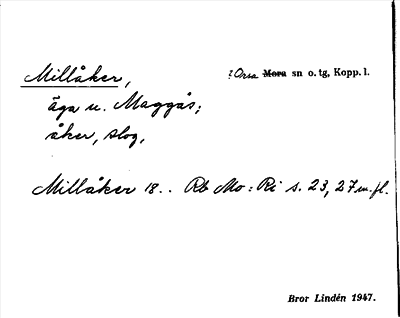 Millåker, ! Orsa Mora sn o. tg, Kopp. l.
äga u. Maggås;
åker, slog,
Millåker 18.. Rb Mo: Ri s. 23, 27 m. fl.
Bror Lindén 1947.